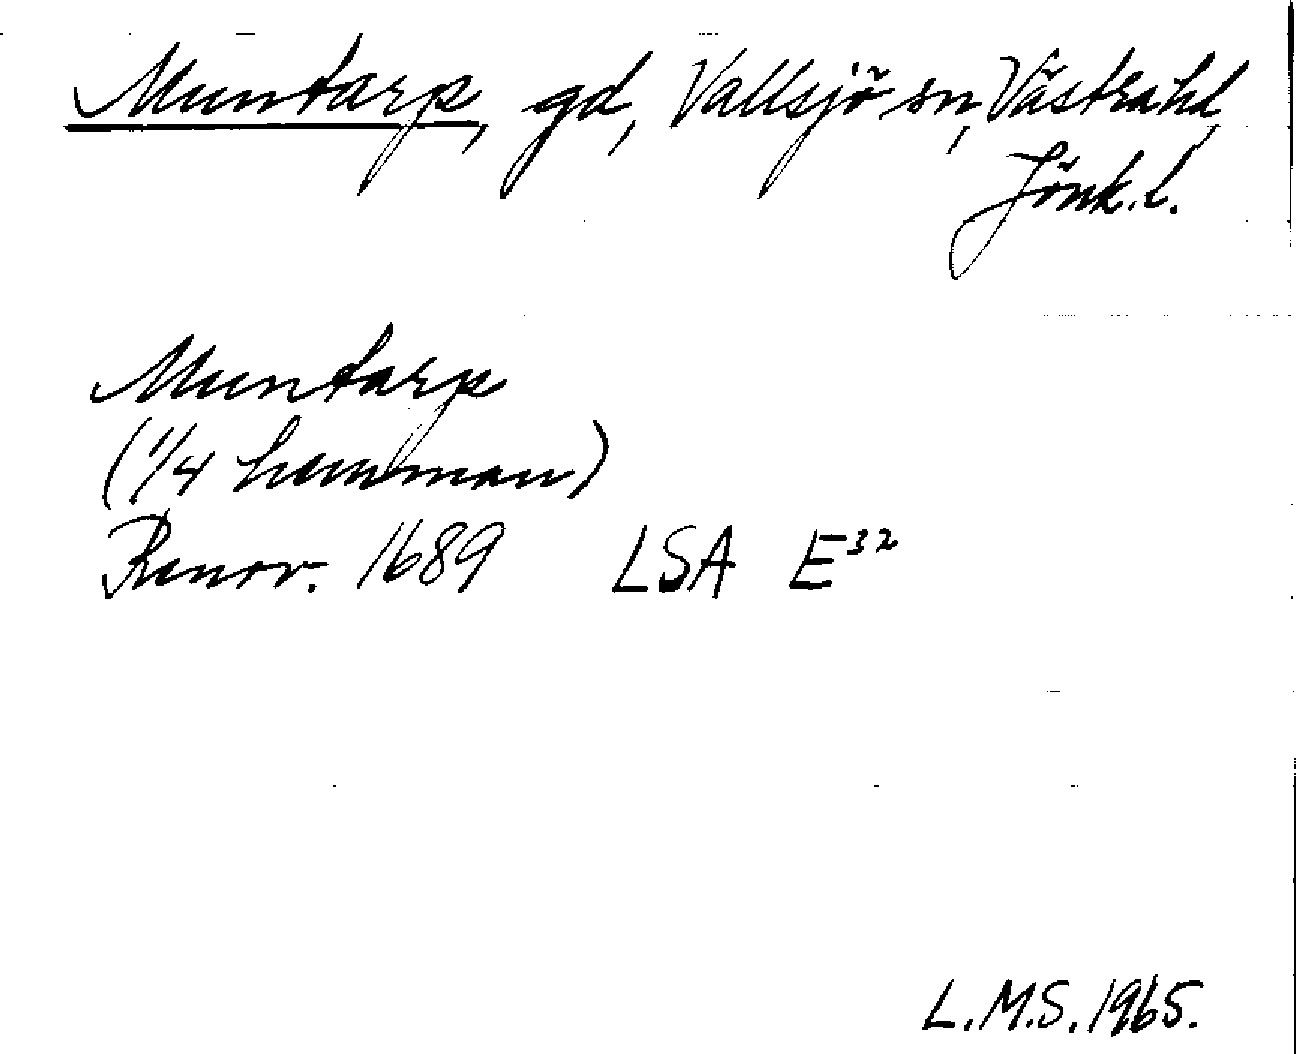 Muntarp, gd, Vallsjö sn, Västra hd,
Jönk. l.
Muntarp
(1/4 hemman)
Renov. 1689 LSA E³²
L.M.S. 1965.